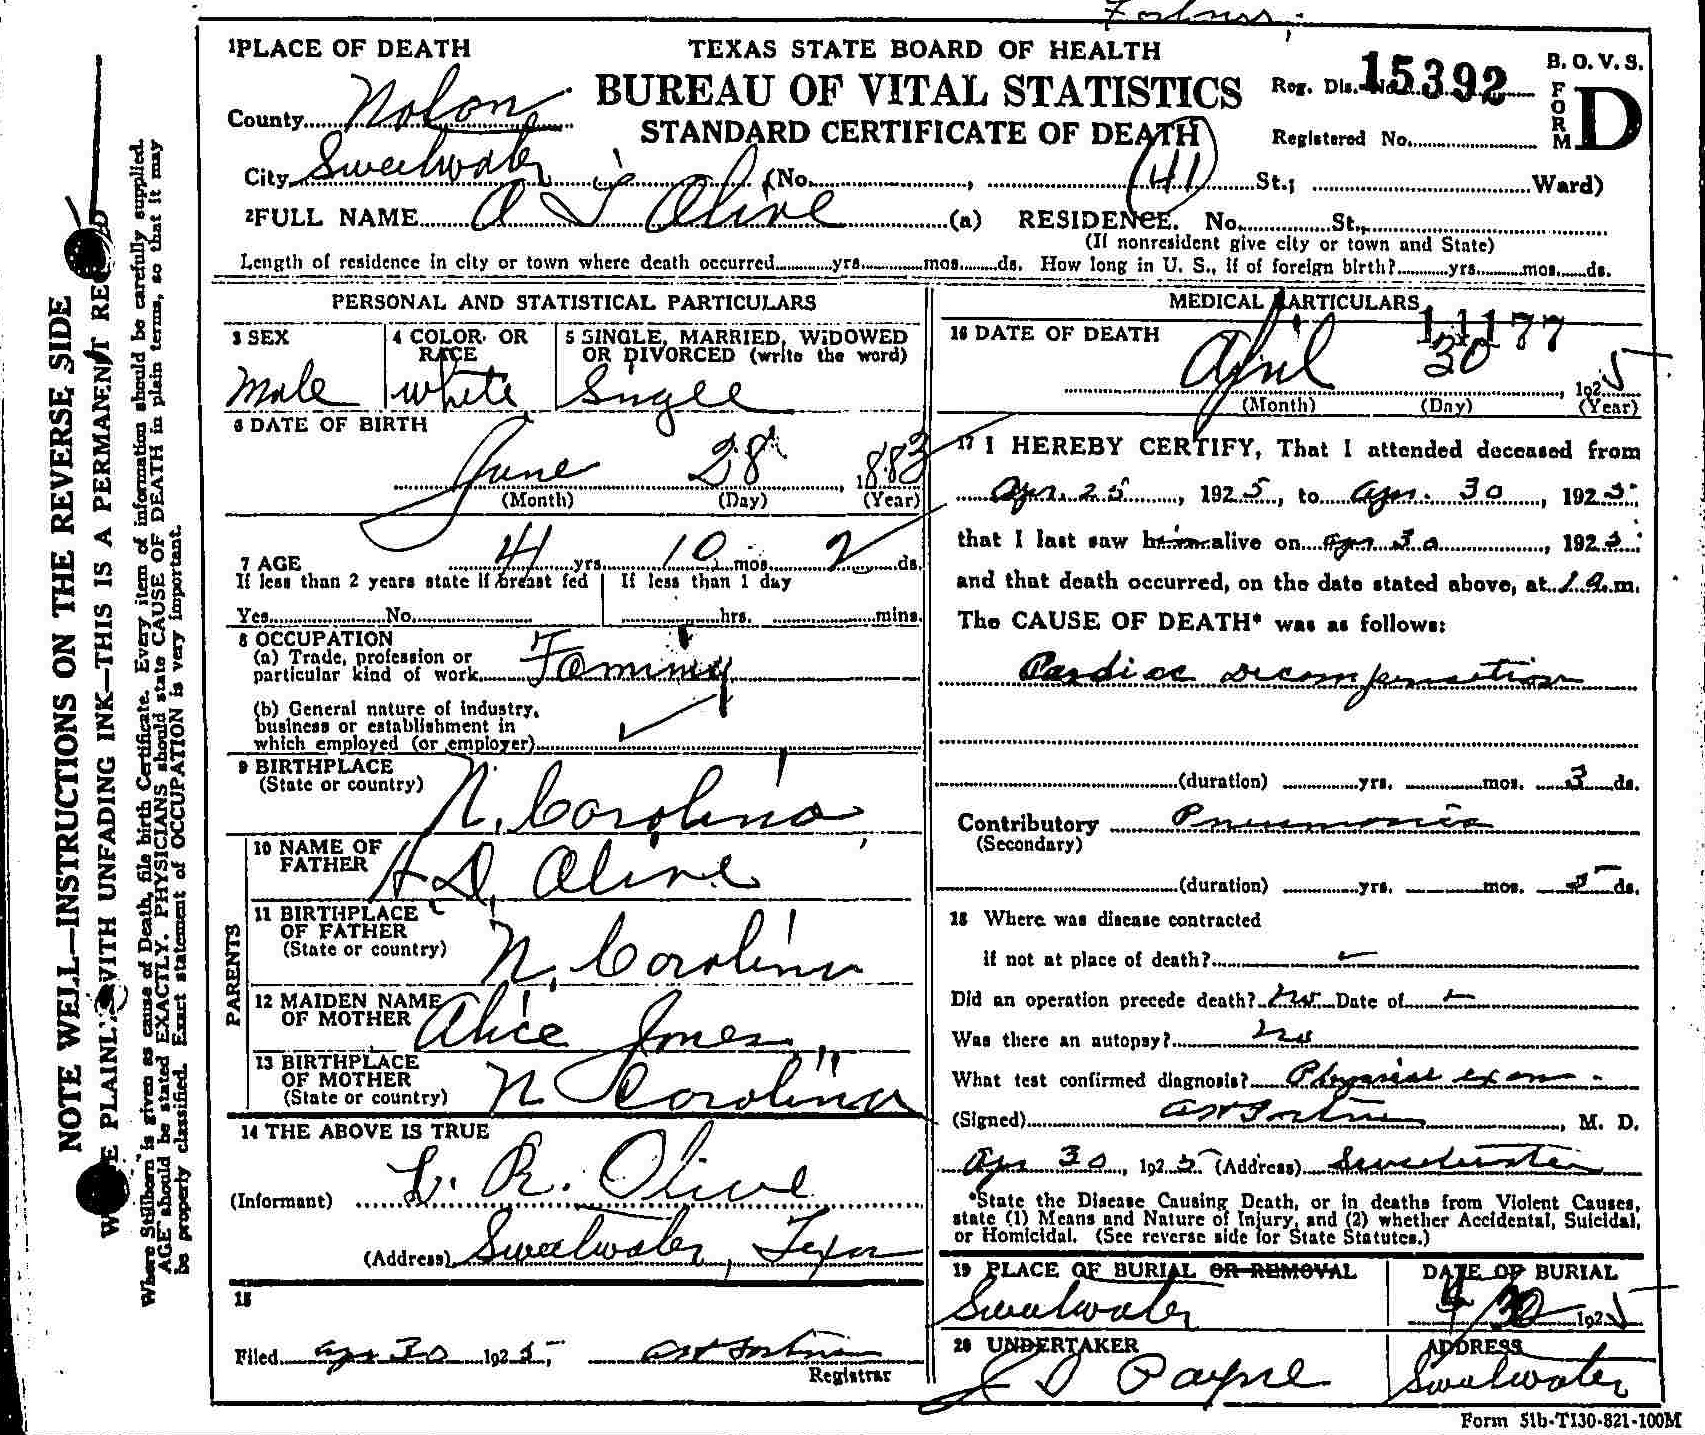 Fortner
1 PLACE OF DEATH
TEXAS STATE BOARD OF HEALTH
BUREAU OF VITAL STATISTICS
STANDARD CERTIFICATE OF DEATH
Reg. Dis. No. 15392
Registered No.
B. O. V. S.
FORM D
County Nolan
City Sweetwater (No. , 41 St.; Ward)
2 FULL NAME O T Olive (a) RESIDENCE. No. St.,
(If nonresident give city or town and State)
Length of residence in city or town where death occurred yrs. mos. ds. How long in U. S., if of foreign birth? yrs. mos. ds.
PERSONAL AND STATISTICAL PARTICULARS
3 SEX
Male
4 COLOR OR RACE
White
5 SINGLE, MARRIED, WIDOWED
OR DIVORCED (write the word)
Single
6 DATE OF BIRTH
June 28 1883
(Month) (Day) (Year)
7 AGE 41 yrs. 10 mos. 2 ds.
If less than 2 years state if breast fed
Yes No
If less than 1 day
hrs. mins.
8 OCCUPATION
(a) Trade, profession or
particular kind of work
(b) General nature of industry,
business or establishment in
which employed (or employer)
9 BIRTHPLACE
(State or country)
N. Carolina
10 NAME OF
FATHER
Olive
PARENTS
11 BIRTHPLACE
OF FATHER
(State or country)
N. Carolina
12 MAIDEN NAME
OF MOTHER
Alice Jones
13 BIRTHPLACE
OF MOTHER
(State or country)
N Carolina
14 THE ABOVE IS TRUE
(Informant) L. R. Olive
(Address) Sweetwater, Texas
15
Filed Apr 30 1925,
Registrar
MEDICAL PARTICULARS
11177
16 DATE OF DEATH
April 30 1925
(Month) (Day) (Year)
17 I HEREBY CERTIFY, That I attended deceased from
Apr. 25, 1925, to Apr. 30, 1925
that I last saw him alive on Apr 30, 1925
and that death occurred, on the date stated above, at 1 a. m.
The CAUSE OF DEATH* was as follows:
Cardiac Decompensation
(duration) yrs. mos. 3 ds.
Contributory Pneumonia
(Secondary)
(duration) yrs. mos. 5 ds.
18 Where was disease contracted
if not at place of death?
Did an operation precede death? no Date of
Was there an autopsy? no
What test confirmed diagnosis? Physical exam.
(Signed) , M. D.
Apr 30, 1925 (Address) Sweetwater
*State the Disease Causing Death, or in deaths from Violent Causes,
state (1) Means and Nature of Injury, and (2) whether Accidental, Suicidal,
or Homicidal. (See reverse side for State Statutes.)
19 PLACE OF BURIAL OR REMOVAL
Sweetwater
DATE OF BURIAL
4/30 1925
20 UNDERTAKER
J D Payne
ADDRESS
Sweetwater
Form 51b-T130-821-100M
NOTE WELL—INSTRUCTIONS ON THE REVERSE SIDE
WRITE PLAINLY WITH UNFADING INK—THIS IS A PERMANENT RECORD
Where Stillborn is given as cause of Death, file birth Certificate. Every item of information should be carefully supplied.
AGE should be stated EXACTLY. PHYSICIANS should state CAUSE OF DEATH in plain terms, so that it may
be properly classified. Exact statement of OCCUPATION is very important.